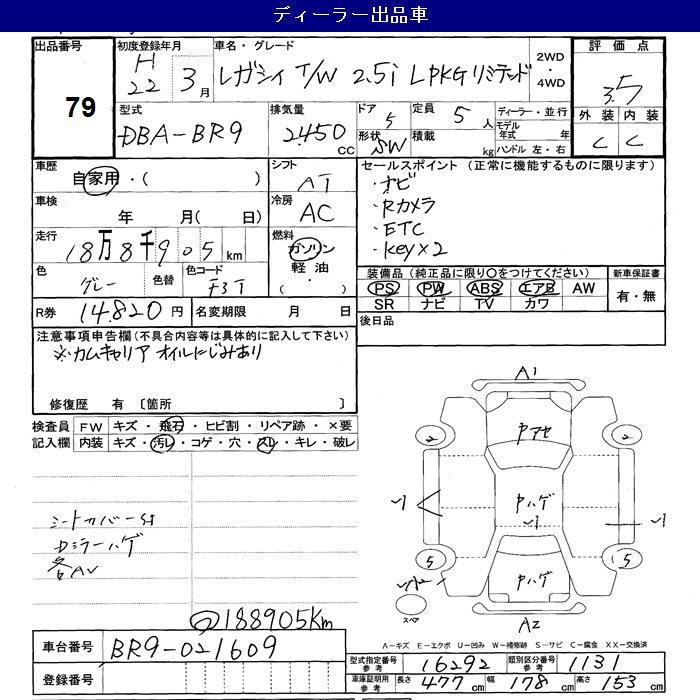 ディーラー出品車
出品番号 79
初度登録年月 H22 3月
車名・グレード レガシィ T/W 2.5i LPKG リミテッド
2WD・4WD
評価点 3.5
外装 C 内装 C
型式 DBA-BR9
排気量 2450 CC
ドア 5 形状 SW
定員 5人 積載 kg
ディーラー・並行
モデル年式 年
ハンドル 左・右
車歴 自家用・( )
シフト AT
セールスポイント (正常に機能するものに限ります)
・ナビ
・Rカメラ
・ETC
・Key×2
車検 年 月( 日)
冷房 AC
走行 18万8千905km
燃料 ガソリン 軽油 ・( )
色 グレー 色替 色コード F3T
装備品 (純正品に限り〇をつけてください)
PS PW ABS エアB AW
SR ナビ TV カワ
新車保証書 有・無
R券 14.820円 名変期限 月 日
後日品
注意事項申告欄 (不具合内容等は具体的に記入して下さい)
※カムキャリア オイルにじみあり
修復歴 有 〔箇所 〕
検査員記入欄
FW キズ・飛石・ヒビ割・リペア跡・×要
内装 キズ・汚レ・コゲ・穴・スレ・キレ・破レ
シートカバー付
ドミラーハゲ
各AV
188905Km
A1
Pアセ
2 2
Pハゲ
-1
-1 -1
5 5
Pハゲ
スペア
A2
A-キズ E-エクボ U-凹み W-補修跡 S-サビ C-腐食 XX-交換済
車台番号 BR9-021609
登録番号
型式指定番号 参考 16292 類別区分番号 参考 1131
車庫証明用 参考 長さ 477cm 幅 178cm 高さ 153cm